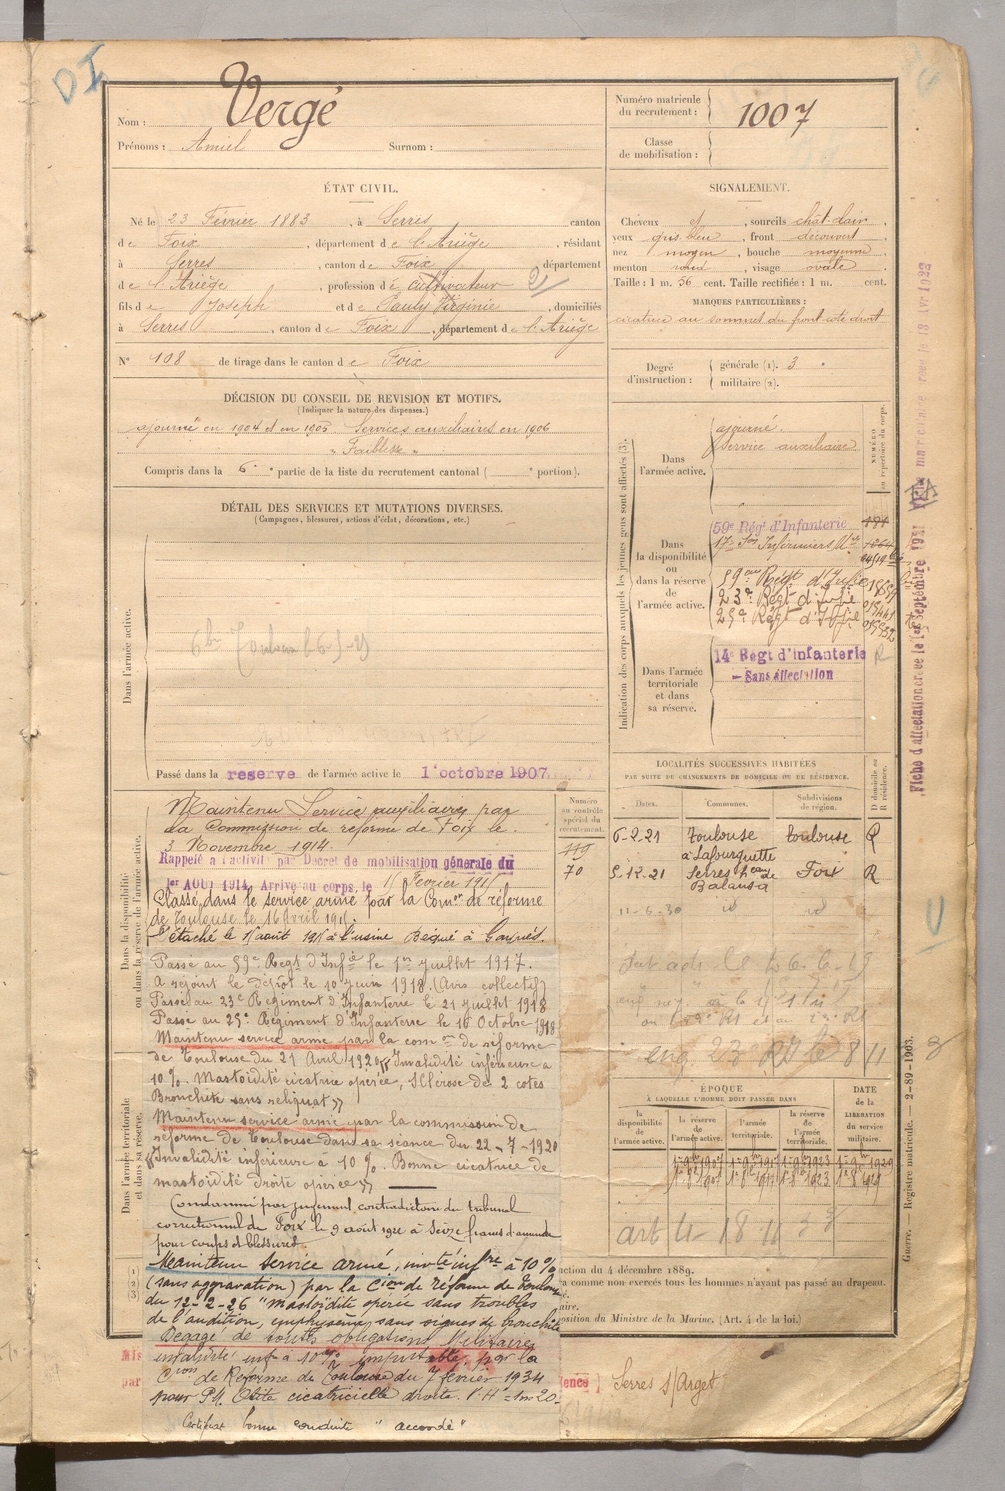 DI
Nom : Vergé
Prénoms : Amiel Surnom :
Numéro matricule du recrutement : 1007
Classe de mobilisation :
ÉTAT CIVIL.
Né le 23 Février 1883, à Serres canton
de Foix, département de l'Ariège, résidant
à Serres, canton de Foix, département
de l'Ariège, profession de cultivateur
fils de Joseph et de Pauly Virginie, domiciliés
à Serres, canton de Foix, département de l'Ariège
N° 108 de tirage dans le canton de Foix
SIGNALEMENT.
Cheveux et, sourcils chât-clair,
yeux gris-bleu, front découvert
nez moyen, bouche moyenne
menton rond, visage ovale
Taille : 1 m. 56 cent. Taille rectifiée : 1 m. cent.
MARQUES PARTICULIÈRES :
cicatrice au sommet du front côté droit
Degré d'instruction : générale (1). 3
militaire (2).
DÉCISION DU CONSEIL DE REVISION ET MOTIFS.
(Indiquer la nature des dispenses.)
ajourné en 1904 et en 1905 Services auxiliaires en 1906
" Faiblesse "
Compris dans la 6e partie de la liste du recrutement cantonal ( e portion).
DÉTAIL DES SERVICES ET MUTATIONS DIVERSES.
(Campagnes, blessures, actions d'éclat, décorations, etc.)
Dans l'armée active.
Passé dans la réserve de l'armée active le 1er octobre 1907
Dans la disponibilité ou dans la réserve de l'armée active.
Maintenu Service auxiliaire par
la Commission de réforme de Foix le
3 Novembre 1914.
Rappelé à l'activité par Décret de mobilisation générale du
1er AOUT 1914. Arrivé au corps, le Février 191
Classé dans le service armé par la Comon de réforme
de Toulouse le 16 Avril 191
Détaché le août 191 à l'usine
Passé au 59e Régt d'Infie le 1er juillet 1917.
A rejoint le dépôt le 10 juin 1918. (Avis collectif)
Passé au 23e Régiment d'Infanterie le 21 juillet 1918
Passé au 25e Régiment d'Infanterie le 16 Octobre 1918
Maintenu service armé par la comon de réforme
de Toulouse du 21 Avril 1920 "Invalidité inférieure à
10 %. Mastoïdite cicatrice opérée, Sclérose de 2 côtés
Bronchite sans reliquat"
Maintenu service armé par la commission de
réforme de Toulouse dans sa séance du 22-7-1920
"Invalidité inférieure à 10 %. Bonne cicatrice de
mastoïdite droite opérée"
Dans l'armée territoriale et dans sa réserve.
Condamné par jugement contradictoire du tribunal
correctionnel de Foix le 9 août 1922 à seize francs d'amende
pour coups et blessures
Maintenu service armé, invté infre à 10 %
(sans aggravation) par la Cion de réforme de Toulouse
du 12-2-26 "mastoïdite opérée sans troubles
de l'audition, emphysème, sans signes de bronchite
Dégagé de toutes obligations Militaires
invalidité inf. à 10 % imputable, par la
Cion de Réforme de Toulouse du 7 février 1934
pour P.M. Otite cicatricielle droite. V.H = 1m20.
Certificat bonne conduite " accordé "
Indication du corps auxquels les jeunes gens sont affectés (3).
NUMÉRO au répertoire du corps.
Dans l'armée active.
ajourné.
Service auxiliaire
Dans la disponibilité ou dans la réserve de l'armée active.
59e Régt d'Infanterie 181
17e Son Infirmiers
59e Régt d'Infie
23e Régt d'Infie
25e Régt d'Infie
Dans l'armée territoriale et dans sa réserve.
14e Régt d'infanterie
Sans affectation
LOCALITÉS SUCCESSIVES HABITÉES
PAR SUITE DE CHANGEMENTS DE DOMICILE OU DE RÉSIDENCE.
Numéro au contrôle spécial du recrutement.
Dates. Communes. Subdivisions de région. D domicile ou R résidence.
119 6-2-21 Toulouse Toulouse R
à Lafourguette
70 5-12-21 Serres Foix R
11-6-30 id id
ÉPOQUE
À LAQUELLE L'HOMME DOIT PASSER DANS
la disponibilité de l'armée active.
la réserve de l'armée active.
l'armée territoriale.
la réserve de l'armée territoriale.
DATE de la LIBÉRATION du service militaire.
uction du 4 décembre 1889.
a comme non exercés tous les hommes n'ayant pas passé au drapeau.
aire.
osition du Ministre de la Marine. (Art. 4 de la loi.)
Mis
par
Serres s/Arget
Guerre. — Registre matricule. — 2-89-1903.
Fiche d'affectation créée le 1er Septembre 1921